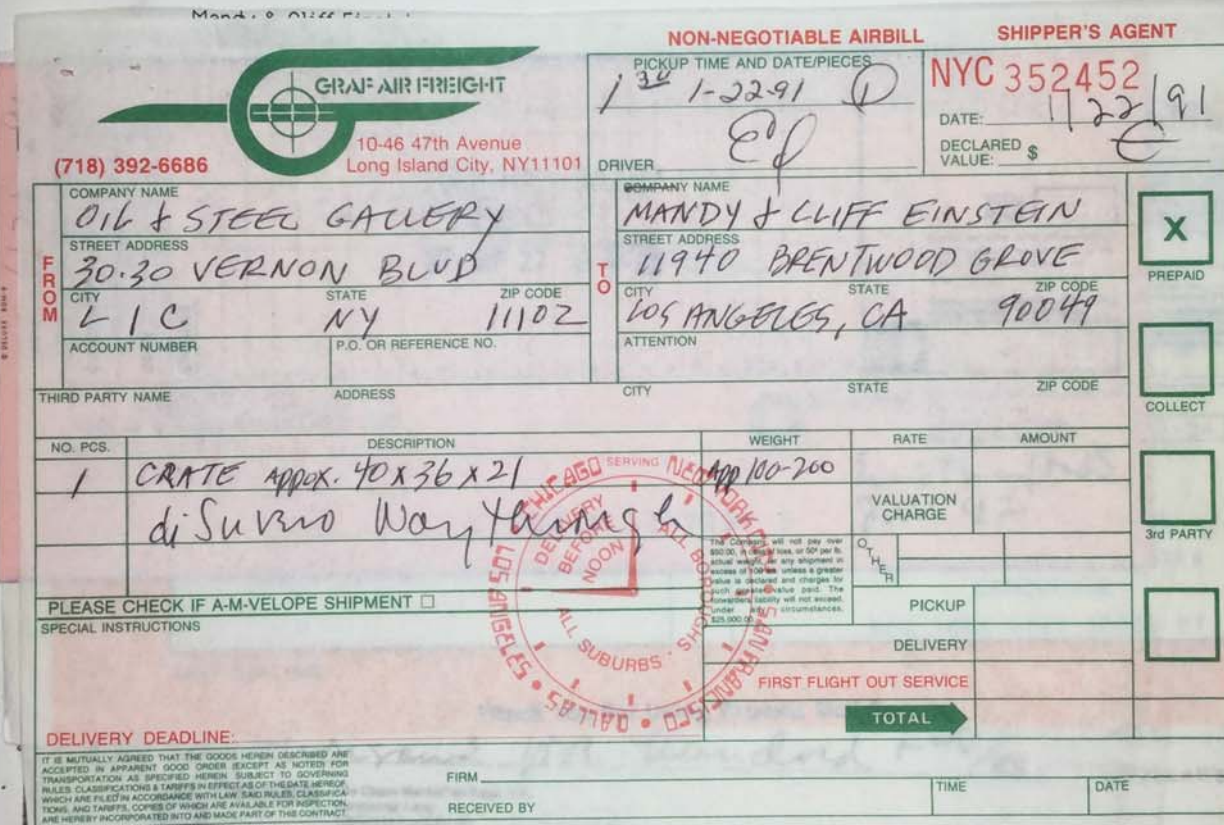 Mandy & Cliff Einstein
NON-NEGOTIABLE AIRBILL
SHIPPER'S AGENT
GRAF AIR FREIGHT
10-46 47th Avenue
Long Island City, NY11101
(718) 392-6686
PICKUP TIME AND DATE/PIECES
1 30 1-22-91 1
DRIVER Ed
NYC 352452
DATE: 1/22/91
DECLARED VALUE: $
FROM
COMPANY NAME
OIL & STEEL GALLERY
STREET ADDRESS
30.30 VERNON BLVD
CITY STATE ZIP CODE
L I C NY 11102
ACCOUNT NUMBER P.O. OR REFERENCE NO.
TO
COMPANY NAME
MANDY & CLIFF EINSTEIN
STREET ADDRESS
11940 BRENTWOOD GROVE
CITY STATE ZIP CODE
LOS ANGELES, CA 90049
ATTENTION
X
PREPAID
COLLECT
3rd PARTY
THIRD PARTY NAME ADDRESS CITY STATE ZIP CODE
NO. PCS. DESCRIPTION WEIGHT RATE AMOUNT
1 CRATE APPOX. 40 X 36 X 21 App 100-200
diSuvero Waythrough
VALUATION CHARGE
The Company will not pay over
$50.00, in case of loss, or 50¢ per lb.
actual weight, for any shipment in
excess of 100 lbs. unless a greater
value is declared and charges for
such greater value paid. The
forwarders liability will not exceed,
under any circumstances,
$25,000.00.
OTHER
PICKUP
DELIVERY
FIRST FLIGHT OUT SERVICE
TOTAL
SERVING NEW YORK
SAN FRANCISCO • DALLAS • LOS ANGELES • CHICAGO
DELIVERY BEFORE NOON
ALL BOROUGHS • ALL SUBURBS
PLEASE CHECK IF A-M-VELOPE SHIPMENT
SPECIAL INSTRUCTIONS
DELIVERY DEADLINE:
IT IS MUTUALLY AGREED THAT THE GOODS HEREIN DESCRIBED ARE
ACCEPTED IN APPARENT GOOD ORDER (EXCEPT AS NOTED) FOR
TRANSPORTATION AS SPECIFIED HEREIN, SUBJECT TO GOVERNING
RULES, CLASSIFICATIONS & TARIFFS IN EFFECT AS OF THE DATE HEREOF,
WHICH ARE FILED IN ACCORDANCE WITH LAW. SAID RULES, CLASSIFICA-
TIONS, AND TARIFFS, COPIES OF WHICH ARE AVAILABLE FOR INSPECTION,
ARE HEREBY INCORPORATED INTO AND MADE PART OF THIS CONTRACT.
FIRM
RECEIVED BY
TIME
DATE